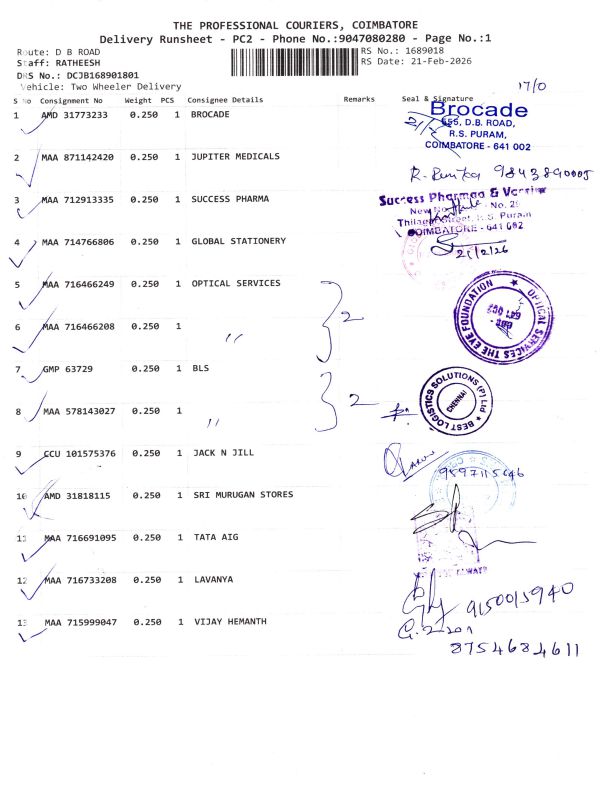 THE PROFESSIONAL COURIERS, COIMBATORE
Delivery Runsheet - PC2 - Phone No.:9047080280 - Page No.:1
Route: D B ROAD
RS No.: 1689018
Staff: RATHEESH
RS Date: 21-Feb-2026
DRS No.: DCJB168901801
Vehicle: Two Wheeler Delivery
17/0
S No Consignment No Weight PCS Consignee Details Remarks Seal & Signature
1 AMD 31773233 0.250 1 BROCADE
Brocade
D.B. ROAD,
R.S. PURAM,
COIMBATORE - 641 002
2 MAA 871142420 0.250 1 JUPITER MEDICALS
3 MAA 712913335 0.250 1 SUCCESS PHARMA
Success Pharmaa &
New No. No. 29
Street, R.S. Puram
COIMBATORE - 641 002
4 MAA 714766806 0.250 1 GLOBAL STATIONERY
21/2/26
5 MAA 716466249 0.250 1 OPTICAL SERVICES
2
OPTICAL SERVICES THE EYE FOUNDATION
6 MAA 716466208 0.250 1 "
7 GMP 63729 0.250 1 BLS
2
BEST LOGISTICS SOLUTIONS (P) Ltd
CHENNAI
8 MAA 578143027 0.250 1 "
9 CCU 101575376 0.250 1 JACK N JILL
10 AMD 31818115 0.250 1 SRI MURUGAN STORES
11 MAA 716691095 0.250 1 TATA AIG
12 MAA 716733208 0.250 1 LAVANYA
9150015940
13 MAA 715999047 0.250 1 VIJAY HEMANTH
8754684611